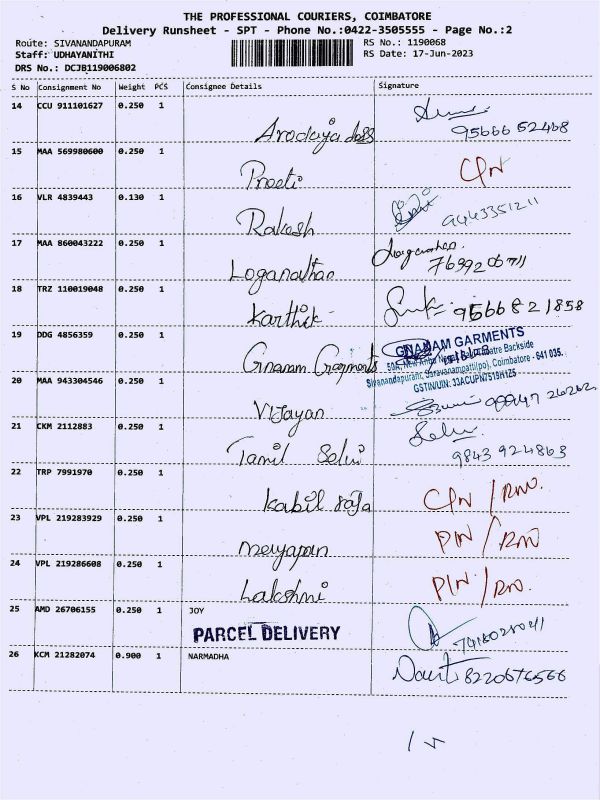 THE PROFESSIONAL COURIERS, COIMBATORE
Delivery Runsheet - SPT - Phone No.:0422-3505555 - Page No.:2
Route: SIVANANDAPURAM
RS No.: 1190068
Staff: UDHAYANITHI
RS Date: 17-Jun-2023
DRS No.: DCJB119006802
S No Consignment No Weight PCS Consignee Details Signature
14 CCU 911101627 0.250 1
Arockiya doss 95666 52468
15 MAA 569980600 0.250 1
Preeti
16 VLR 4839443 0.130 1
Rakesh 9443351211
17 MAA 860043222 0.250 1
Loganathan Loganathan
18 TRZ 110019048 0.250 1
Karthik 9566821858
19 DDG 4856359 0.250 1
Gnanam Garments GNANAM GARMENTS
Backside
Sivanandapuram, Saravanampatti(po), Coimbatore - 641 035.
GSTIN/UIN: 33ACUPN7519H1Z5
20 MAA 943304546 0.250 1
Vijayan
21 CKM 2112883 0.250 1
Tamil Selvi Selvi
9843924863
22 TRP 7991970 0.250 1
Kabil raja
23 VPL 219283929 0.250 1
Meyyapan
24 VPL 219286608 0.250 1
Lakshmi
25 AMD 26706155 0.250 1 JOY
PARCEL DELIVERY
26 KCM 21282074 0.900 1 NARMADHA
8220676566